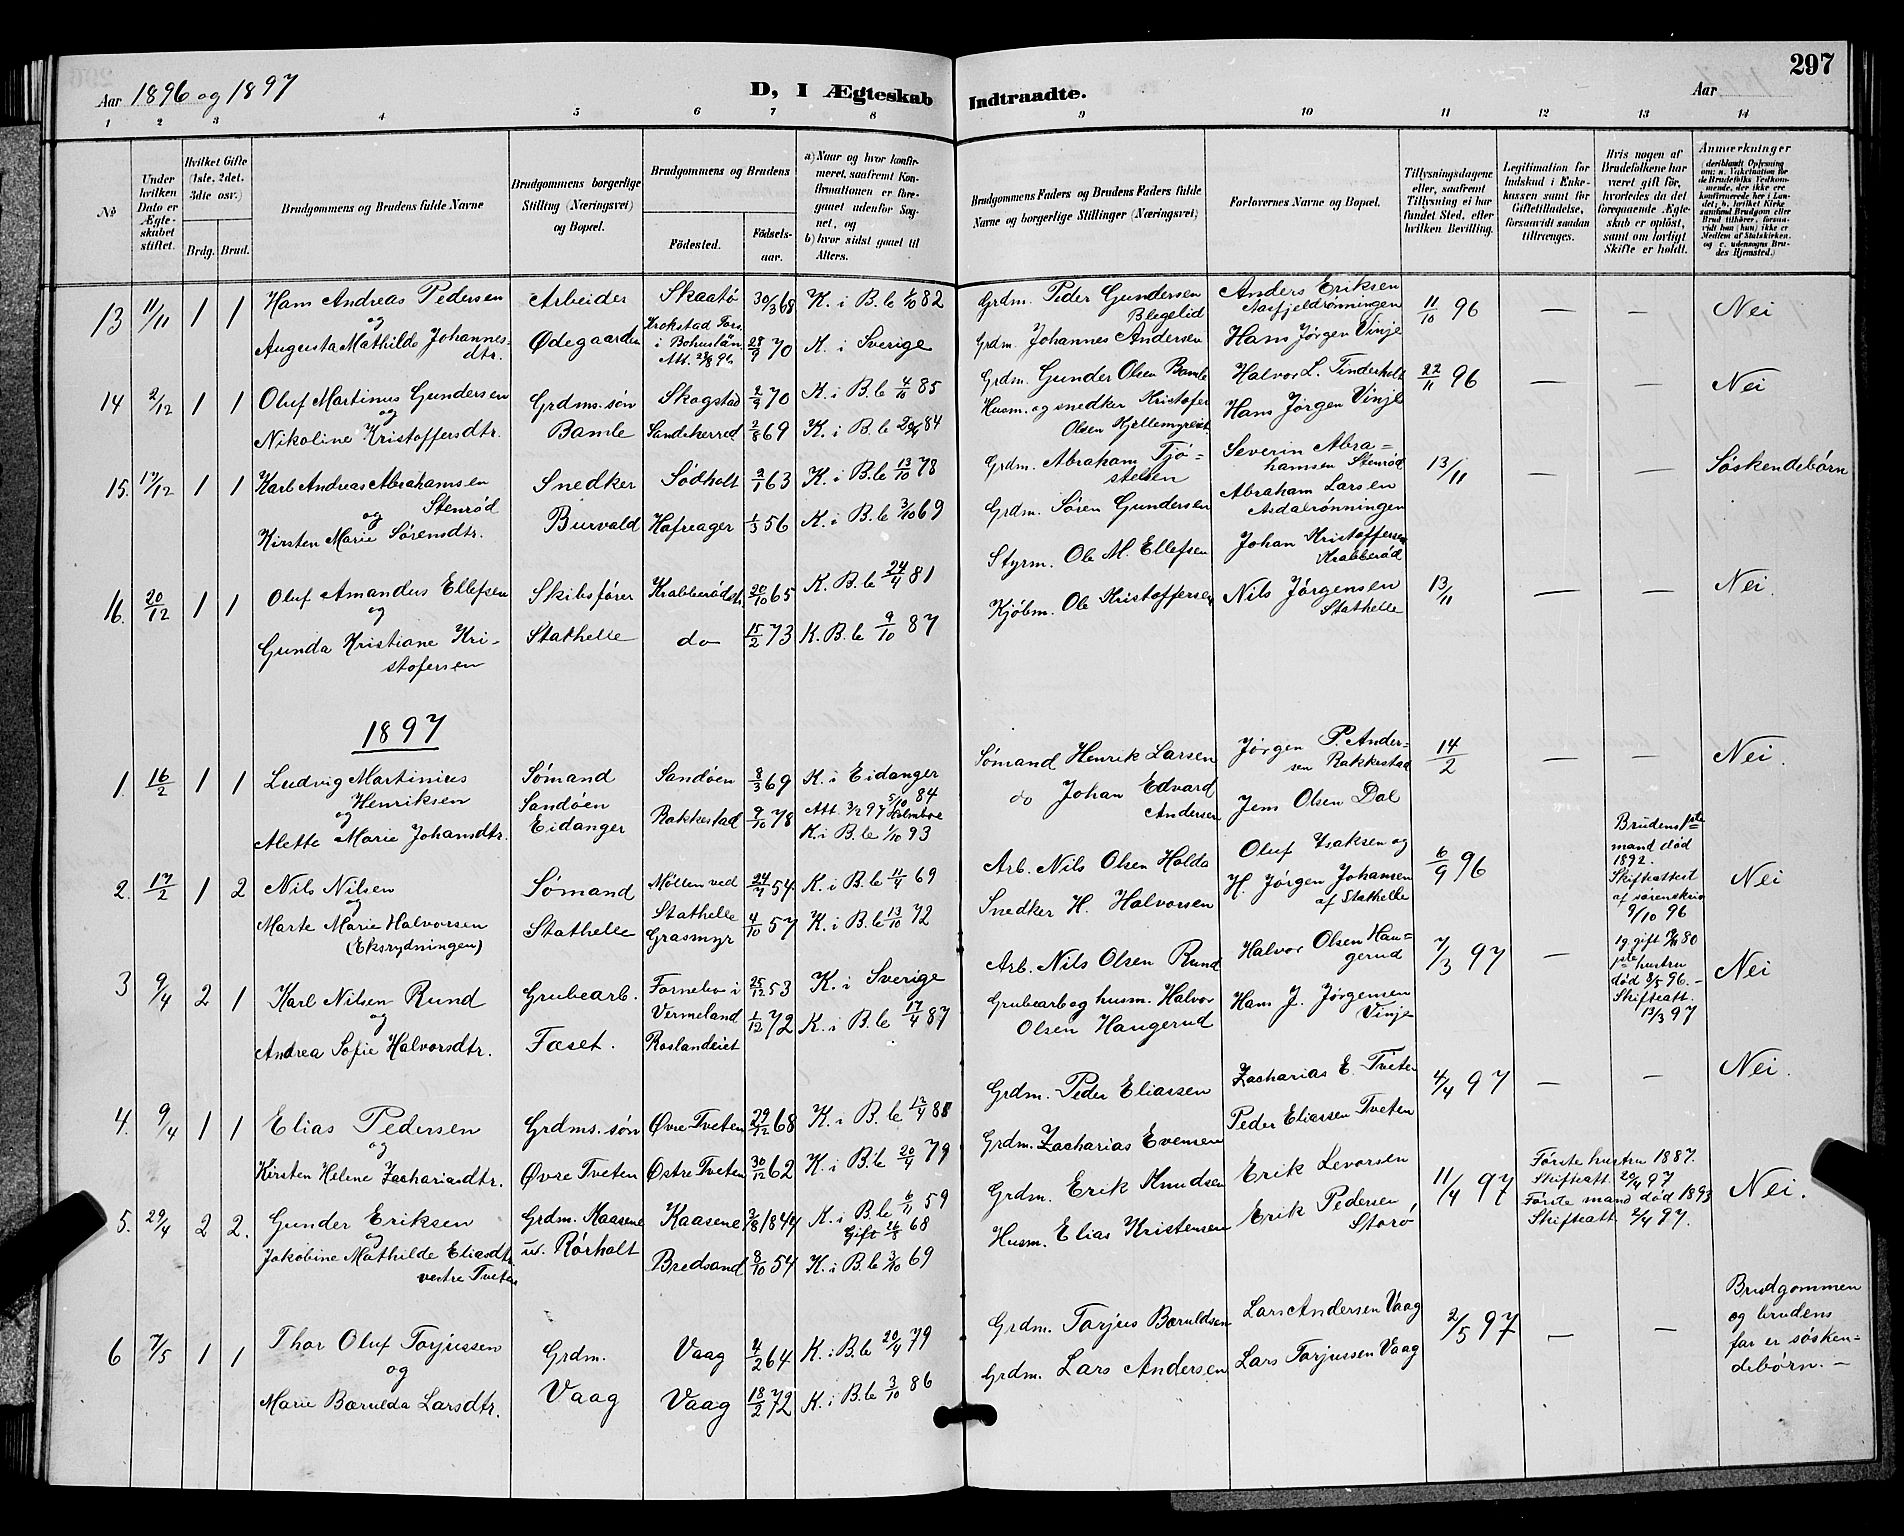 Aar 1896 og 1897
D, I Ægteskab Indtraadte.
Aar
297
1 2 3 4 5 6 7 8 9 10 11 12 13 14
No
Under hvilken Dato er Ægteskabet stiftet.
Hvilket Gifte (1ste, 2det, 3die osv.)
Brdg. Brud.
Brudgommens og Brudens fulde Navne
Brudgommens borgerlige Stilling (Næringsvei) og Bopæl.
Brudgommens og Brudens
Födested. Födsels-aar.
a) Naar og hvor konfirmeret, saafremt Konfirmationen er foregaaet udenfor Sognet, og
b) hvor sidst gaaet til Alters.
Brudgommens Faders og Brudens Faders fulde Navne og borgerlige Stillinger (Næringsvei)
Forlovernes Navne og Bopæl.
Tillysningsdagene eller, saafremt Tillysning ei har fundet Sted, efter hvilken Bevilling.
Legitimation for Indskud i Enkekassen samt for Giftetilladelse, forsaavidt saadan tiltrænges.
Hvis nogen af Brudefolkene har været gift før, hvorledes da det foregaaende Ægteskab er opløst, samt om lovligt Skifte er holdt.
Anmærkninger
13 11/11 1 1 Hans Andreas Pedersen
og
Augusta Mathilde Johannesdtr.
Arbeider
Ødegaarden
Skaatø 30/3 68 K. i B.le 82
Krokstad Fors. i Bohuslän 28/9 70 K. i Sverige
Grdm. Peder Gundersen Blegelid
Grdm. Johannes Andersen
Anders Eriksen
Hans Jørgen Vinje
11/10 96 — — Nei
14 2/12 1 1 Oluf Martinus Gundersen
og
Nikoline Kristoffersdtr.
Grdms. søn
Bamle
Skogstad 2/9 70 K. i B.le 4/10 85
Sandeherred 2/8 69 K. i B.le 84
Grdm. Gunder Olsen Bamle
Husm. og snedker Kristofer Olsen
Halvor L. Tinderholt
Hans Jørgen Vinje
22/11 96 — — Nei
15. 17/12 1 1 Karl Andreas Abrahamsen Stenrød
og
Kirsten Marie Sørensdtr.
Snedker
Burvald
Sødholt 2/1 63 K. i B.le 13/10 78
Hafreager 1/3 56 K. i B.le 3/10 69
Grdm. Abraham Tjøstelsen
Grdm. Søren Gundersen
Severin Abrahamsen Stenrød
Abraham Larsen Asdalrønningen
13/11 — — Søskendebørn
16. 20/12 1 1 Oluf Amandus Ellefsen
og
Gunda Kristiane Kristofersen
Skibsfører
Stathelle
Krabberødstr. 20/10 65 K. B.le 24/4 81
do 15/2 73 K. B.le 9/10 87
Styrm. Ole M. Ellefsen
Kjøbm. Ole Kristoffersen
Johan Kristoffersen Krabberød
Nils Jørgensen Stathelle
13/11 — — Nei.
1897
1. 16/2 1 1 Ludvig Martinius Henriksen
og
Alette Marie Johansdtr.
Sømand
Sandøen
Eidanger
Sandøen 8/3 69 K. i Eidanger 5/10 84
Att. 3/2 97 Holmboe
Rakkestad 9/10 78 K. i B.le 1/10 93
Sømand Henrik Larsen
do Johan Edvard Andersen
Jørgen P. Andersen Rakkestad
Jens Olsen Dal
14/2 — — Nei.
2. 17/2 1 2 Nils Nilsen
og
Marte Marie Halvorsen
(Eksrydningen)
Sømand
Stathelle
Møllen ved Stathelle 24/7 54 K. i B.le 11/4 69
Grasmyr 4/10 57 K. i B.le 13/10 72
Arb. Nils Olsen Holda
Snedker H. Halvorsen
Oluf Isaksen og
H. Jørgen Johansen af Stathelle
6/9 96
Brudens 1ste mand død 1892. Skifteattest af sorenskriv 9/10 96
Nei
3 9/4 2 1 Karl Nilsen Rund
og
Andrea Sofie Halvorsdtr.
Grubearb.
Faset.
Fornebo i Vermeland 25/12 53 K. i Sverige
Roslandeiet 1/12 72 K. i B.le 17/4 87
Arb. Nils Olsen Rund
Grubearb og husm. Halvor Olsen Haugerud
Halvor Olsen Haugerud
Hans J. Jørgensen Vinje
7/3 97 —
1ste hustru død 8/5 96. – Skifteatt. 13/3 97
Nei
4. 9/4 1 1 Elias Pedersen
og
Kirsten Helene Zachariasdtr.
Grdms. søn
Øvre Tveten
Øvre Tveten 29/12 68 K. i B.le 17/4 88
Østre Tveten 30/12 62 K. i B.le 20/4 79
Grdm. Peder Eliassen
Grdm. Zacharias Evensen
Zacharias E. Tveten
Peder Eliassen Tveten
4/4 97 — — Nei.
5. 29/4 2 2. Gunder Eriksen
og
Jakobine Mathilde Eliasdtr
vestre Tveten
Grdm. Kaasene
u. Rørholt
Kaasene 1844 K. i B.le 6/11 59
Gift 68
Bredsand 8/10 54 K. i B.le 3/10 69
Grdm. Erik Knudsen
Husm. Elias Kristensen
Erik Levorsen
Erik Pedersen Storø
11/4 97
Første hustru 1887.
Skifteatt. 2/4 97
Første mand død 1893
Skifteatt 2/4 97.
Nei.
6 7/5 1 1 Thor Oluf Torjussen
og
Marie Barulda Larsdtr.
Grdm.
Vaag
Vaag 4/2 64 K. i B.le 20/4 79
Vaag 18/2 72 K. i B.le 3/10 86
Grdm. Torjus Baruldsen
Grdm. Lars Andersen
Lars Andersen Vaag
Lars Torjussen Vaag
2/5 97 — —
Brudgommen og brudens far er søskendebørn. –